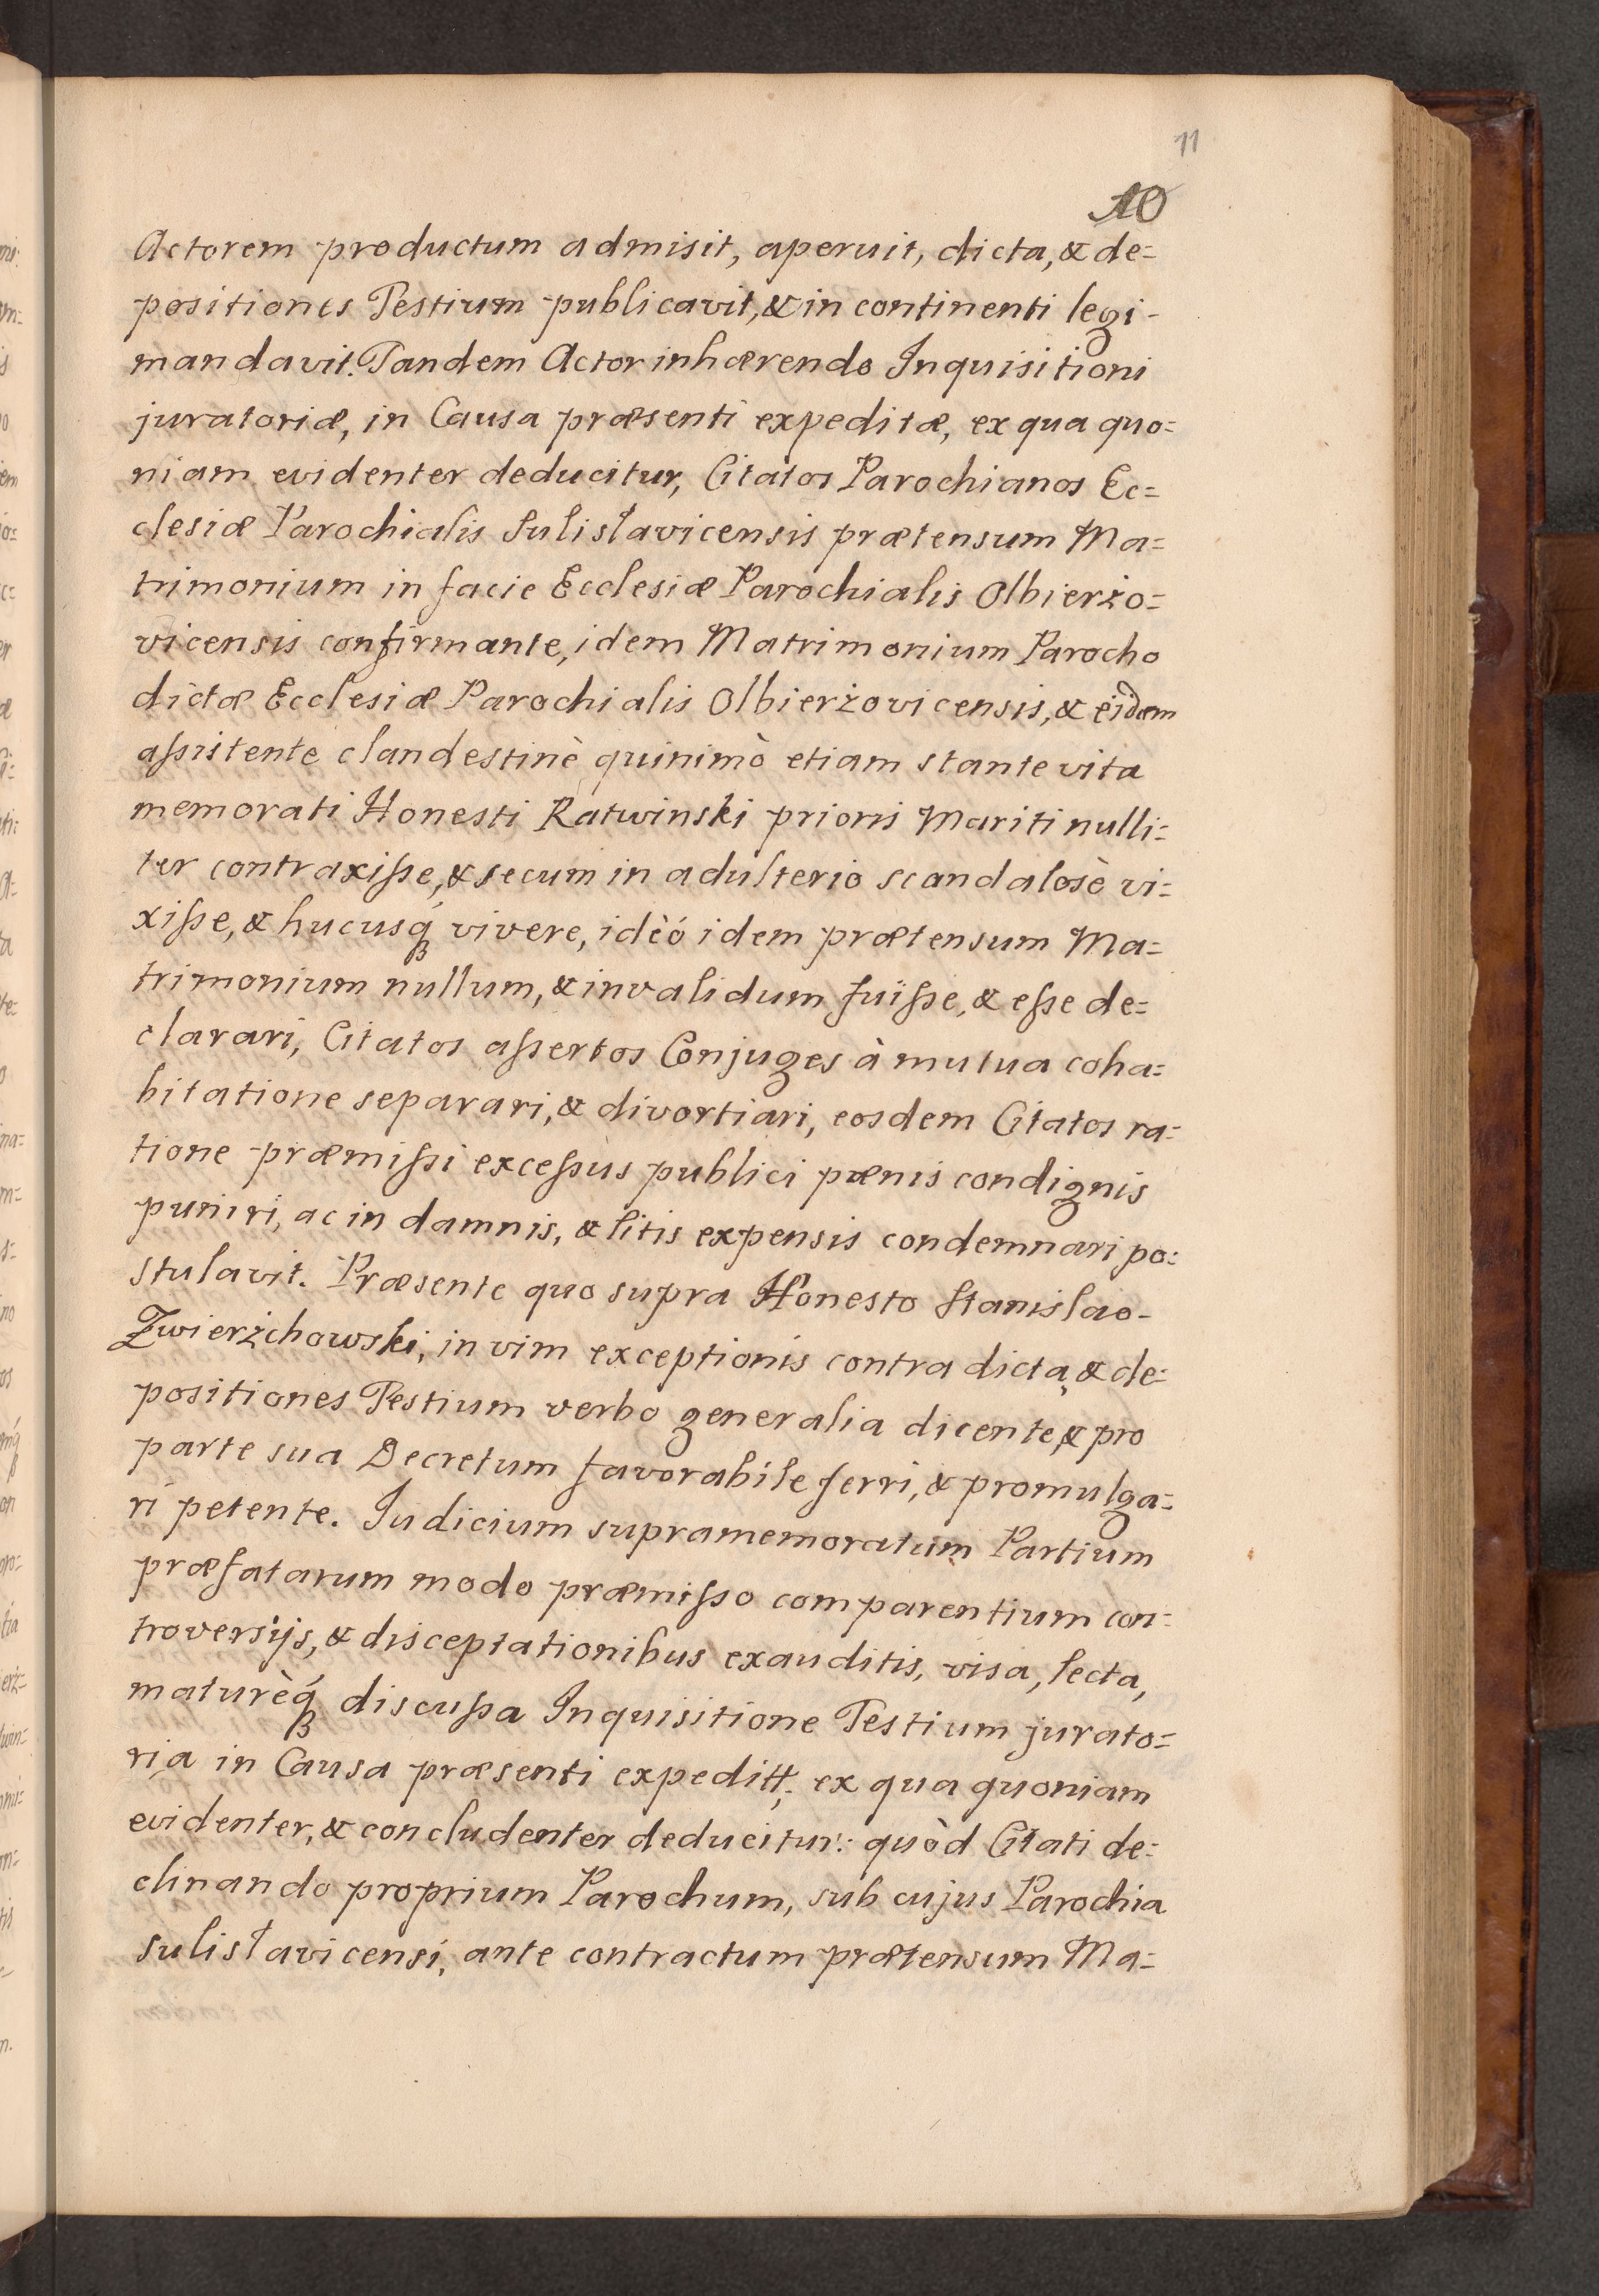 11
10
Actorem productum admisit, aperuit, dicta, & de=
positiones Testium publicavit, & in continenti legi-
mandavit. Tandem Actor inhærendo Inquisitioni
juratoriæ, in Causa præsenti expeditæ, ex qua quo=
niam evidenter deducitur, Citatos Parochianos Ec=
clesiæ Parochialis Sulislavicensis prætensum Ma=
trimonium in facie Ecclesiæ Parochialis Olbierżo=
vicensis confirmante, idem Matrimonium Parocho
dictæ Ecclesiæ Parochialis Olbierżovicensis, & eidem
assistente clandestinè quinimò etiam stante vita
memorati Honesti Ratwinski prioris Mariti nulli=
ter contraxisse, & secum in adulterio scandalosè vi=
xisse, & hucusq́ vivere, idèó idem prætensum Ma=
trimonium nullum, & invalidum fuisse, & esse de=
clarari, Citatos assertos Conjuges à mutua coha=
bitatione separari, & divortiari, eosdem Citatos ra=
tione præmissi excessus publici pænis condignis
puniri, ac in damnis, & litis expensis condemnari po=
stulavit. Præsente quo supra Honesto Stanislao-
Zwierżchowski, in vim exceptionis contra dicta, & de=
positiones Testium verbo generalia dicente, & pro
parte sua Decretum favorabile ferri, & promulga=
ri petente. Iudicium supramemoratum Partium
præfatarum modo præmisso comparentium con=
troversijs, & disceptationibus exauditis, visa, lecta,
maturèq́ discussa Inquisitione Testium jurato=
ria in Causa præsenti expeditt, ex qua quoniam
evidenter, & concludenter deducitur: quòd Citati de=
clinando proprium Parochum, sub cujus Parochia
sulislavicensi, ante contractum prætensum Ma=